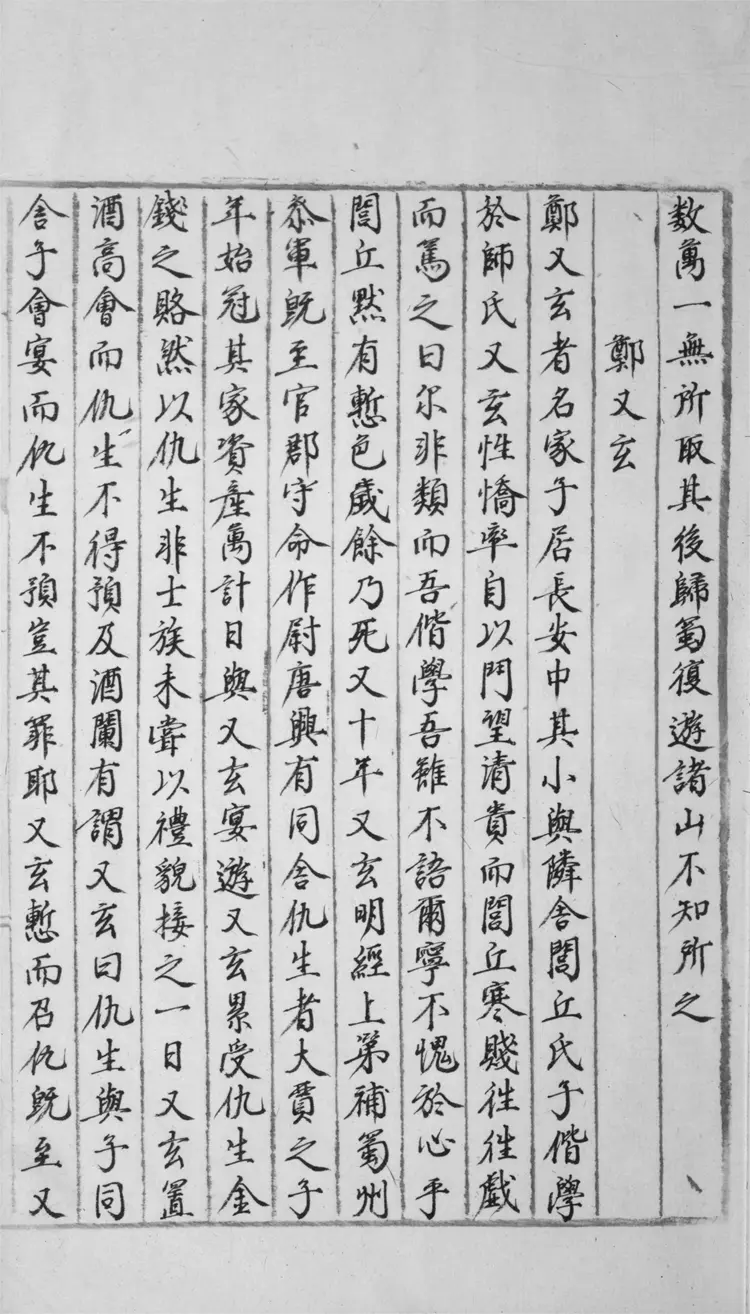 数萬一無所取其後歸蜀復遊諸山不知所之
鄭又玄
鄭又玄者名家子居長安中其小與隣舍閭丘氏子偕學
於師氏又玄性憍率自以門望清貴而閭丘寒賤徃徃戯
而罵之曰尔非類而吾偕學吾雖不語爾寧不愧於心乎
閭丘黙有慙色歲餘乃死又十年又玄明經上第補蜀州
叅軍旣至官郡守命作尉唐興有同舍仇生者大賈之子
年始冠其家資産萬計日與又玄宴遊又玄累受仇生金
錢之賂然以仇生非士族未嘗以禮貌接之一日又玄置
酒高會而仇生不得預及酒闌有謂又玄曰仇生與子同
舍子會宴而仇生不預豈其罪耶又玄慙而召仇旣至又